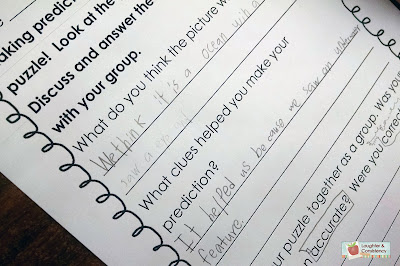 aking predic
puzzle! Look at the
Discuss and answer the
with your group.
What do you think the picture w
We think it is a ocean with a
saw a
What clues helped you make your
prediction?
It helped us because we saw an
feature.
ur puzzle together as a group. Was your
n accurate? Were you correc
Laughter &
Consistency